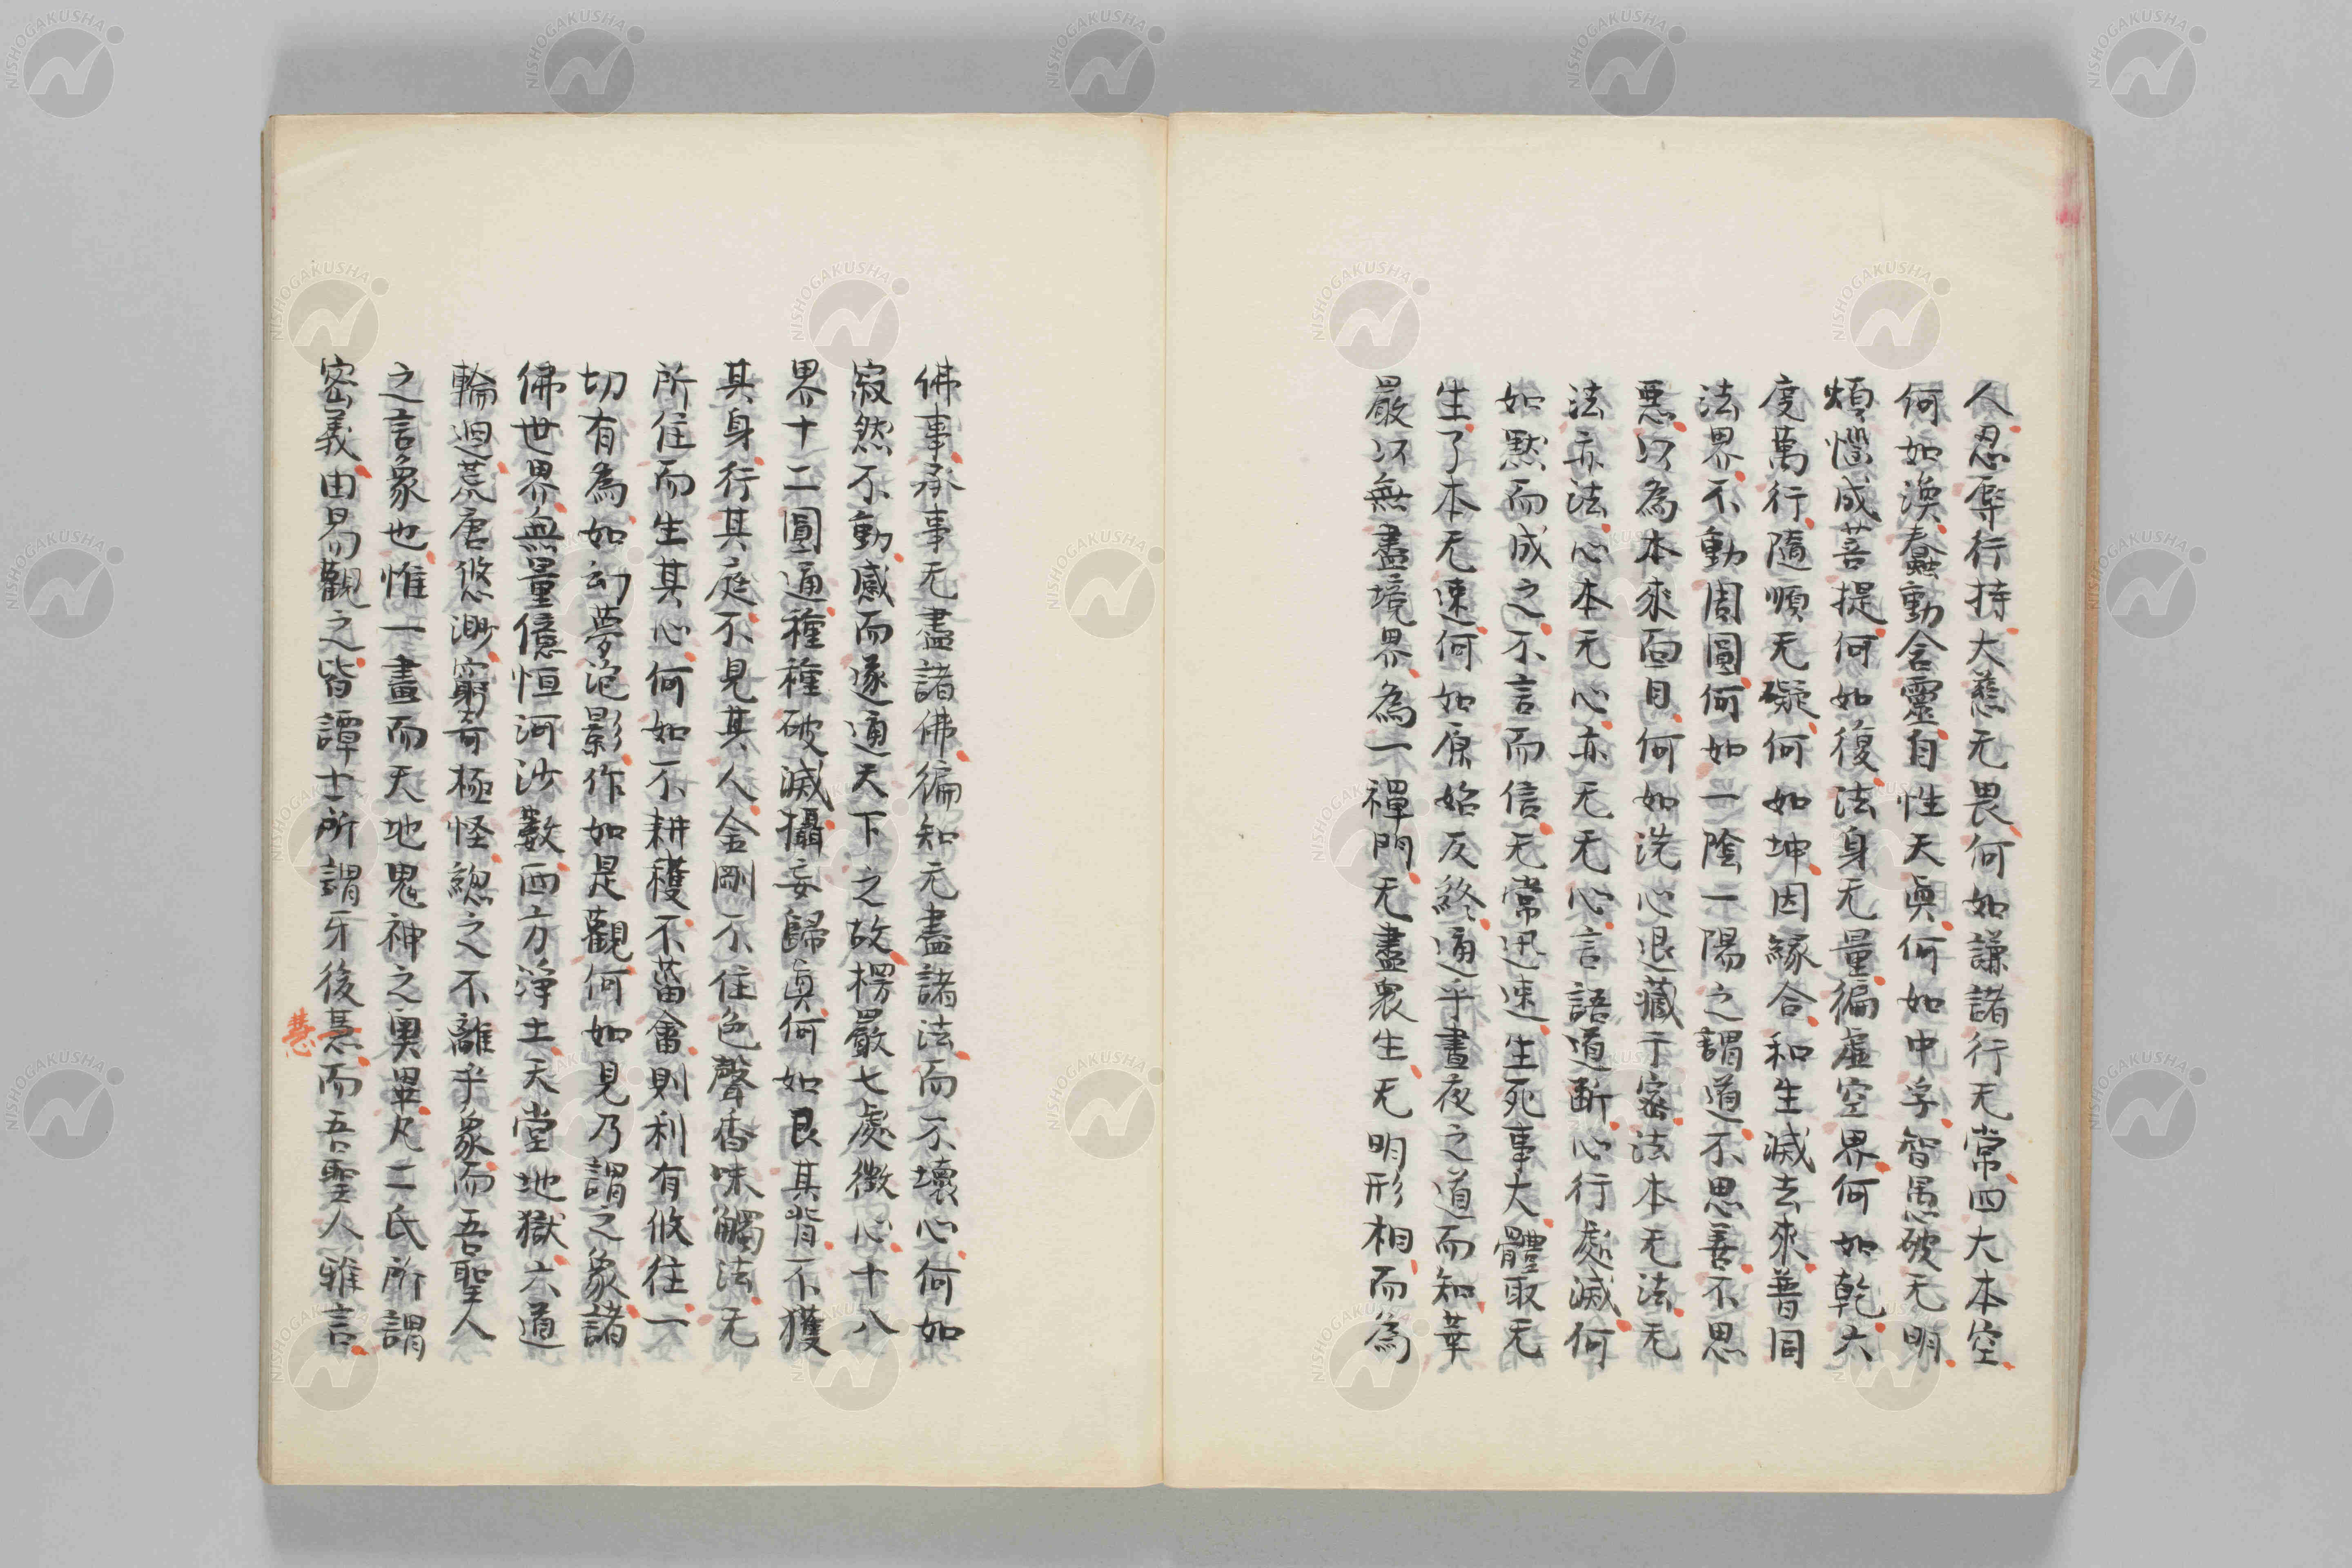 人忍辱行持大慈无畏何如謙諸行无常四大本空
何如渙蠢動含靈自性天眞何如中孚智愚破无明
煩惱成菩提何如復法身无量徧虛空界何如乾六
度萬行隨順无礙何如坤因緣合和生滅去來普目
法界不動周圓何如一陰一陽之謂道不思善不思
惡以為本來面目何如洗心退藏于密法本无法无
法亦法心本无心亦无无心言語道斷心行處滅何
如黙而成之不言而信无常迅速生死事大體取无
生了本无速何如原始反終通乎晝夜之道而知華
嚴以無盡境界為一禪門无盡衆生无明形相而為
佛事承事无盡諸佛徧知无盡諸法而不壞心何如
寂然不動感而遂通天下之故楞嚴七處徵心十八
界十二圓通種種破滅攝妄歸眞何如艮其背不獲
其身行其庭不見其人金剛不住色聲香味觸法无
所住而生其心何如不耕穫不菑畬則利有攸往一
切有為如幻夢泡影作如是觀何如見乃謂之象諸
佛世界無量億恒河沙數西方淨土天堂地獄六道
輪迴荒唐悠渺窮奇極怪總之不離乎象而吾聖人
之言象也惟一畫而天地鬼神之奧畢凡二氏所謂
密義由易觀之皆譚士所謂牙後慧而吾聖人雅言
慧
NISHOGAKUSHA